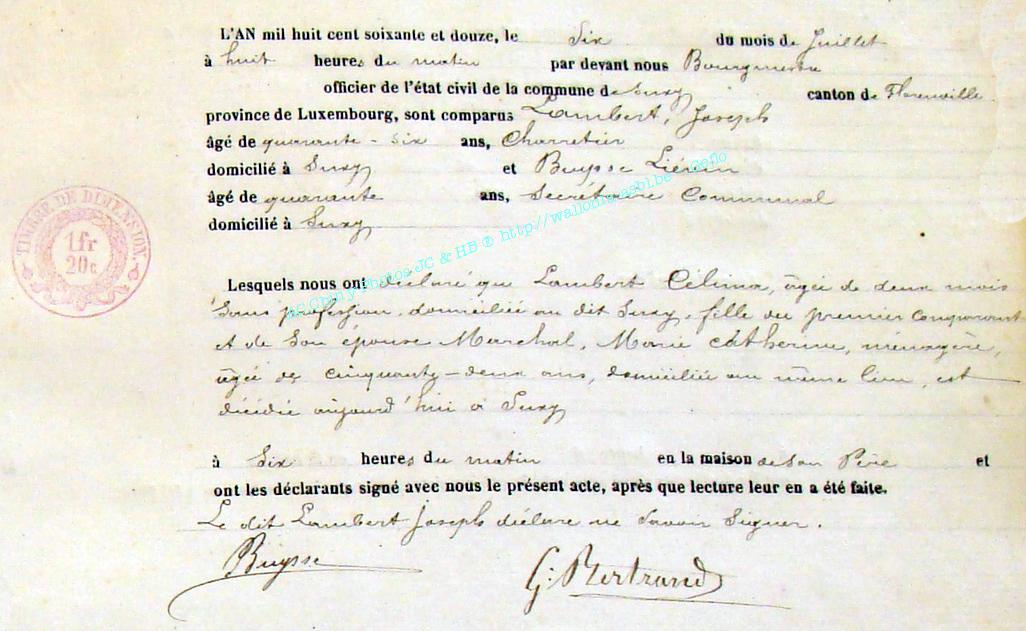 L'AN mil huit cent soixante et douze, le Six du mois de Juillet
à huit heures du matin par devant nous Bourgmestre
officier de l'état civil de la commune de Suxy canton de Florenville
province de Luxembourg, sont comparus Lambert, Joseph
âgé de quarante-six ans, Charretier
domicilié à Suxy et Buysse Liévin
âgé de quarante ans, Secrétaire Communal
domicilié à Suxy
TIMBRE DE DIMENSION.
1 fr
20 c
Lesquels nous ont déclaré que Lambert Célina, âgée de deux mois
Sans profession, domiciliée au dit Suxy, fille du premier comparant
et de Son épouse Marchal, Marie Catherine, ménagère,
âgée de cinquante-deux ans, domiciliée au même lieu, est
décédée aujourd'hui à Suxy
à Six heures du matin en la maison de son Père et
ont les déclarants signé avec nous le présent acte, après que lecture leur en a été faite.
Le dit Lambert Joseph déclare ne Savoir Signer.
Buysse
G. Bertrand
Photos JC & HB © http://walloniasbl.be